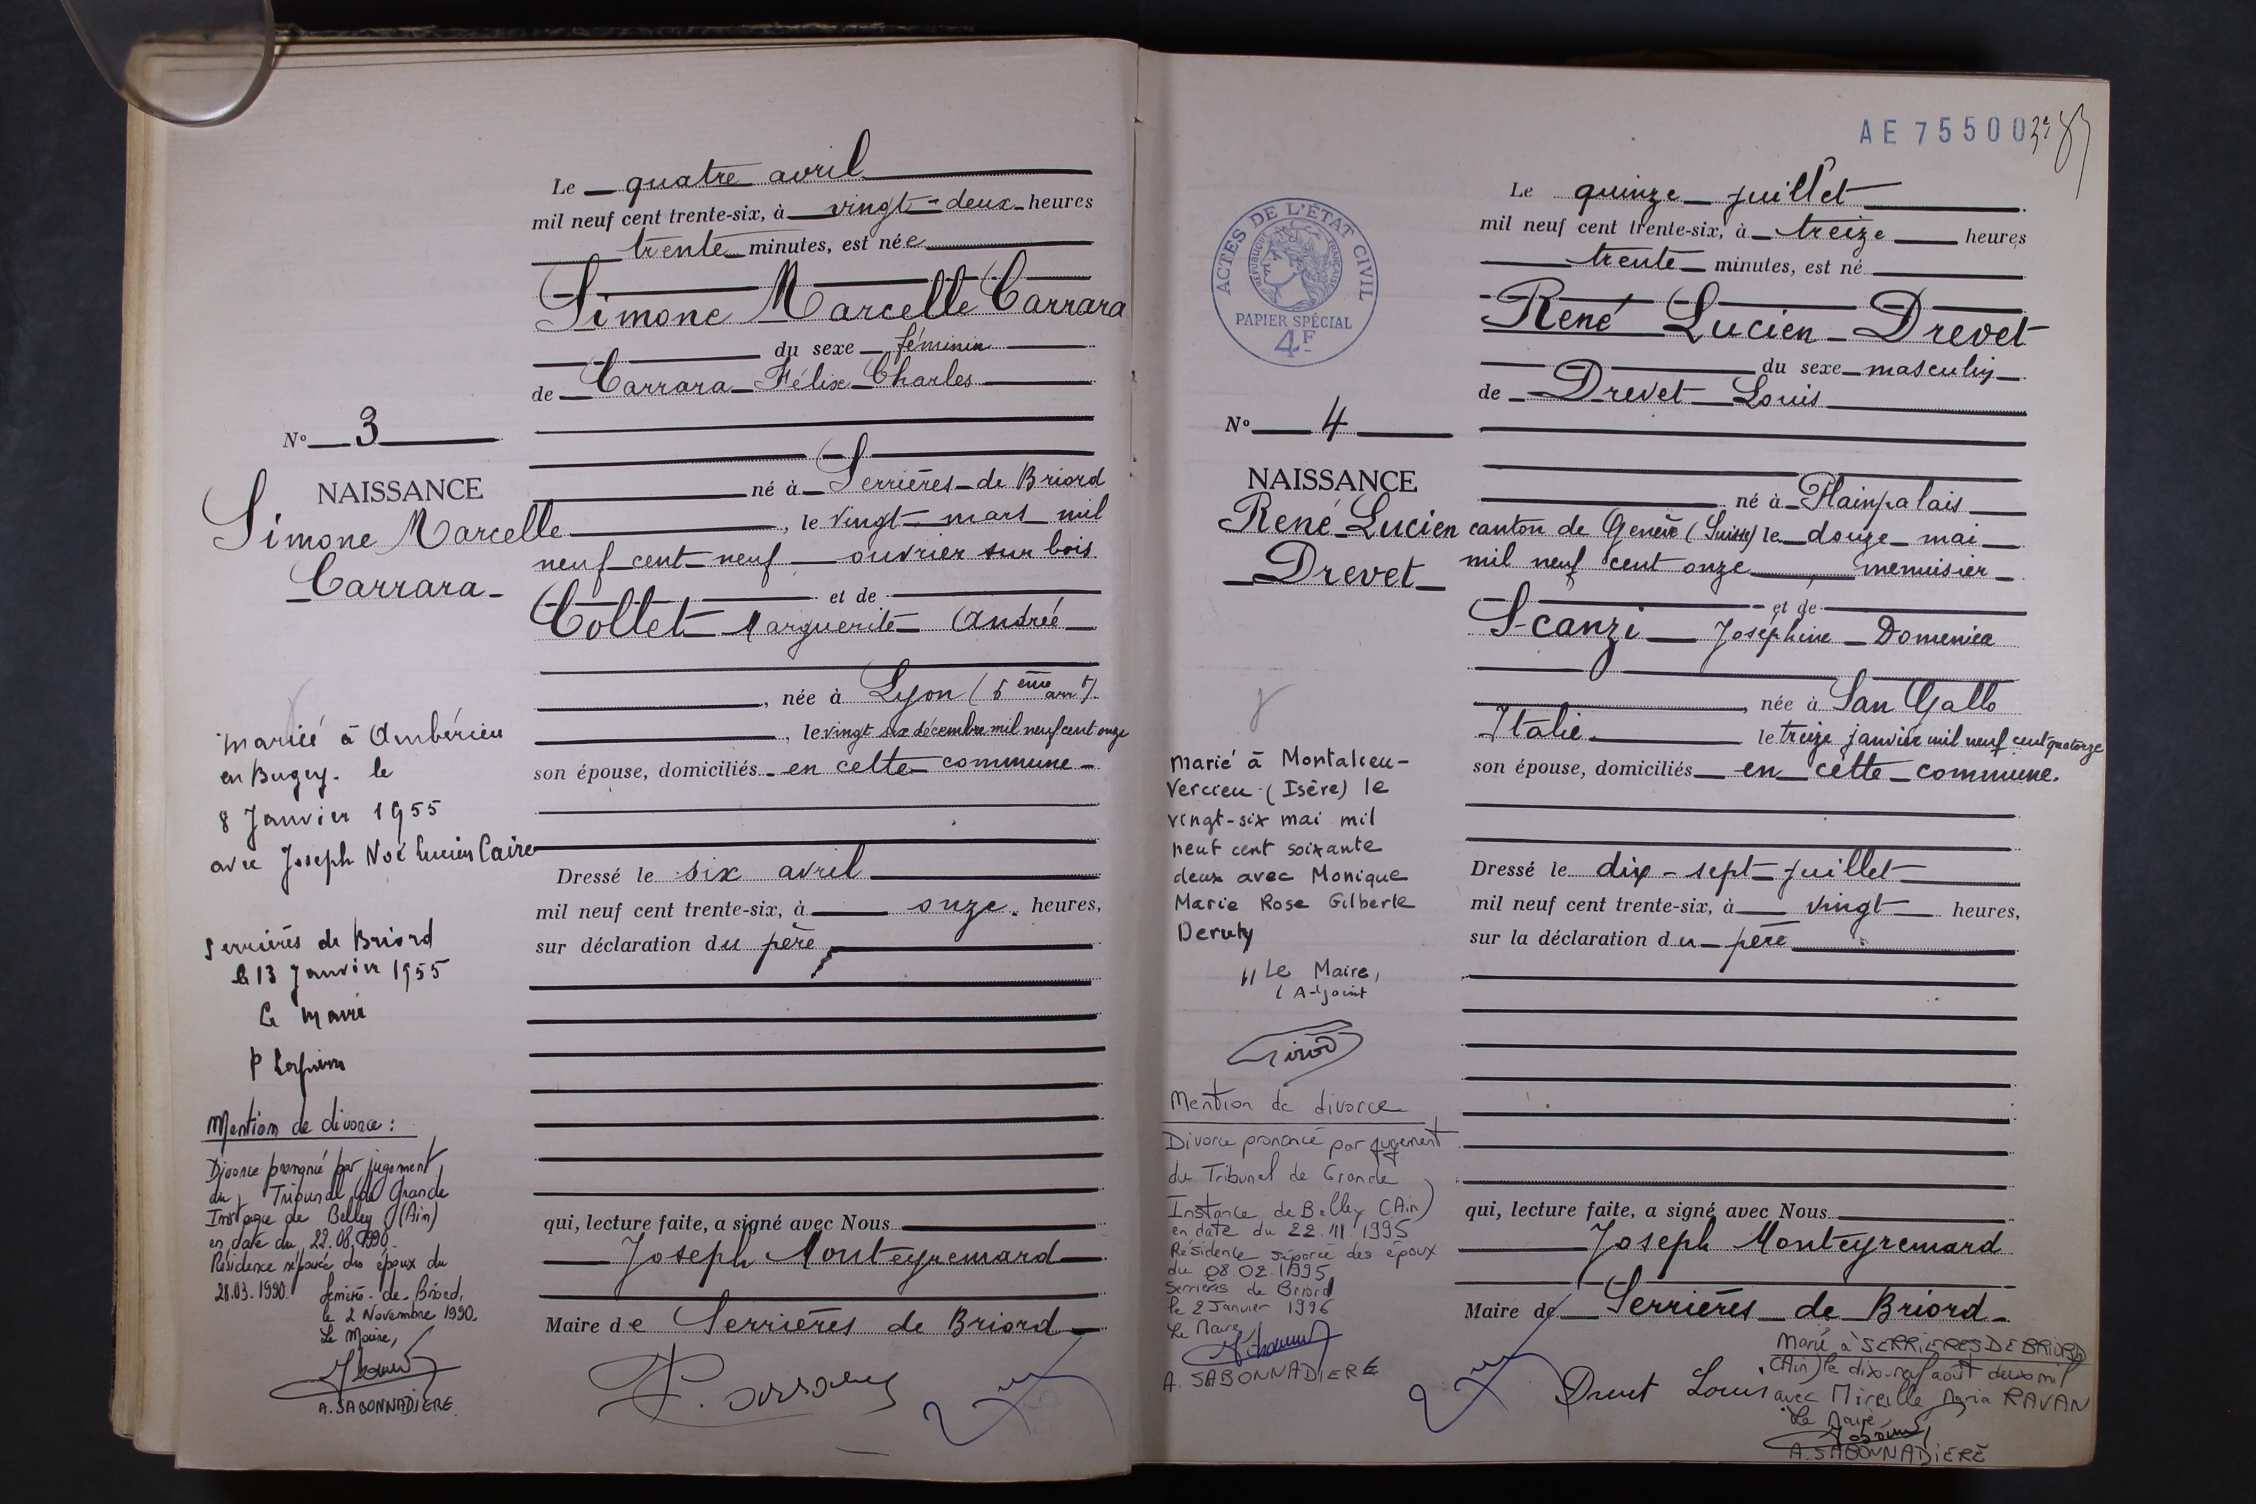 Le quatre avril
mil neuf cent trente-six, à vingt-deux heures
trente minutes, est née
Simone Marcelle Carrara
du sexe féminin
de Carrara Félix Charles
né à Serrières de Briord
, le vingt mars mil
neuf cent neuf ouvrier sur bois
et de
Collet Marguerite Andrée
, née à Lyon (6 ème arrt)
, le vingt six décembre mil neuf cent onze
son épouse, domiciliés en cette commune
Dressé le six avril
mil neuf cent trente-six, à onze heures,
sur déclaration du père
qui, lecture faite, a signé avec Nous
Joseph Monteyremard
Maire de Serrières de Briord
No 3
NAISSANCE
Simone Marcelle
Carrara
mariée à Ambérieu
en Bugey le
8 Janvier 1955
avec Joseph Noé Lucien Caire
Serrières de Briord
le 13 Janvier 1955
Le maire
Mention de divorce :
Divorce prononcé par jugement
du Tribunal de Grande
Instance de Belley (Ain)
en date du 22.08.1990.
Résidence séparée des époux du
28.03.1990.
Serrières-de-Briord,
le 2 Novembre 1990.
Le Maire,
A. SABONNADIERE
AE 75500
ACTES DE L'ETAT CIVIL
REPUBLIQUE FRANÇAISE
PAPIER SPÉCIAL
4F
Le quinze juillet
mil neuf cent trente-six, à treize heures
trente minutes, est né
René Lucien Drevet
du sexe masculin
de Drevet Louis
né à Plainpalais
canton de Genève (Suisse) le douze mai
mil neuf cent onze, menuisier
et de
Scanzi Joséphine Domenica
, née à San Gallo
Italie le treize janvier mil neuf cent quatorze
son épouse, domiciliés en cette commune.
Dressé le dix-sept juillet
mil neuf cent trente-six, à vingt heures,
sur la déclaration du père
qui, lecture faite, a signé avec Nous
Joseph Monteyremard
Maire de Serrières de Briord
Drevet Louis
No 4
NAISSANCE
René Lucien
Drevet
marié à Montalieu-
Vercieu (Isère) le
vingt-six mai mil
neuf cent soixante
deux avec Monique
Marie Rose Gilberte
Deruty
Le Maire,
l'Adjoint
Girod
Mention de divorce
Divorce prononcé par jugement
du Tribunal de Grande
Instance de Belley (Ain)
en date du 22.11.1995
Résidence séparée des époux
du 08.02.1995
Serrières de Briord
le 2 Janvier 1996
Le Maire
A. SABONNADIERE
Marié à SERRIERES DE BRIORD
(Ain) le dix-neuf août deux mil
avec Mireille Maria RAVAN
Le Maire
A. SABONNADIERE